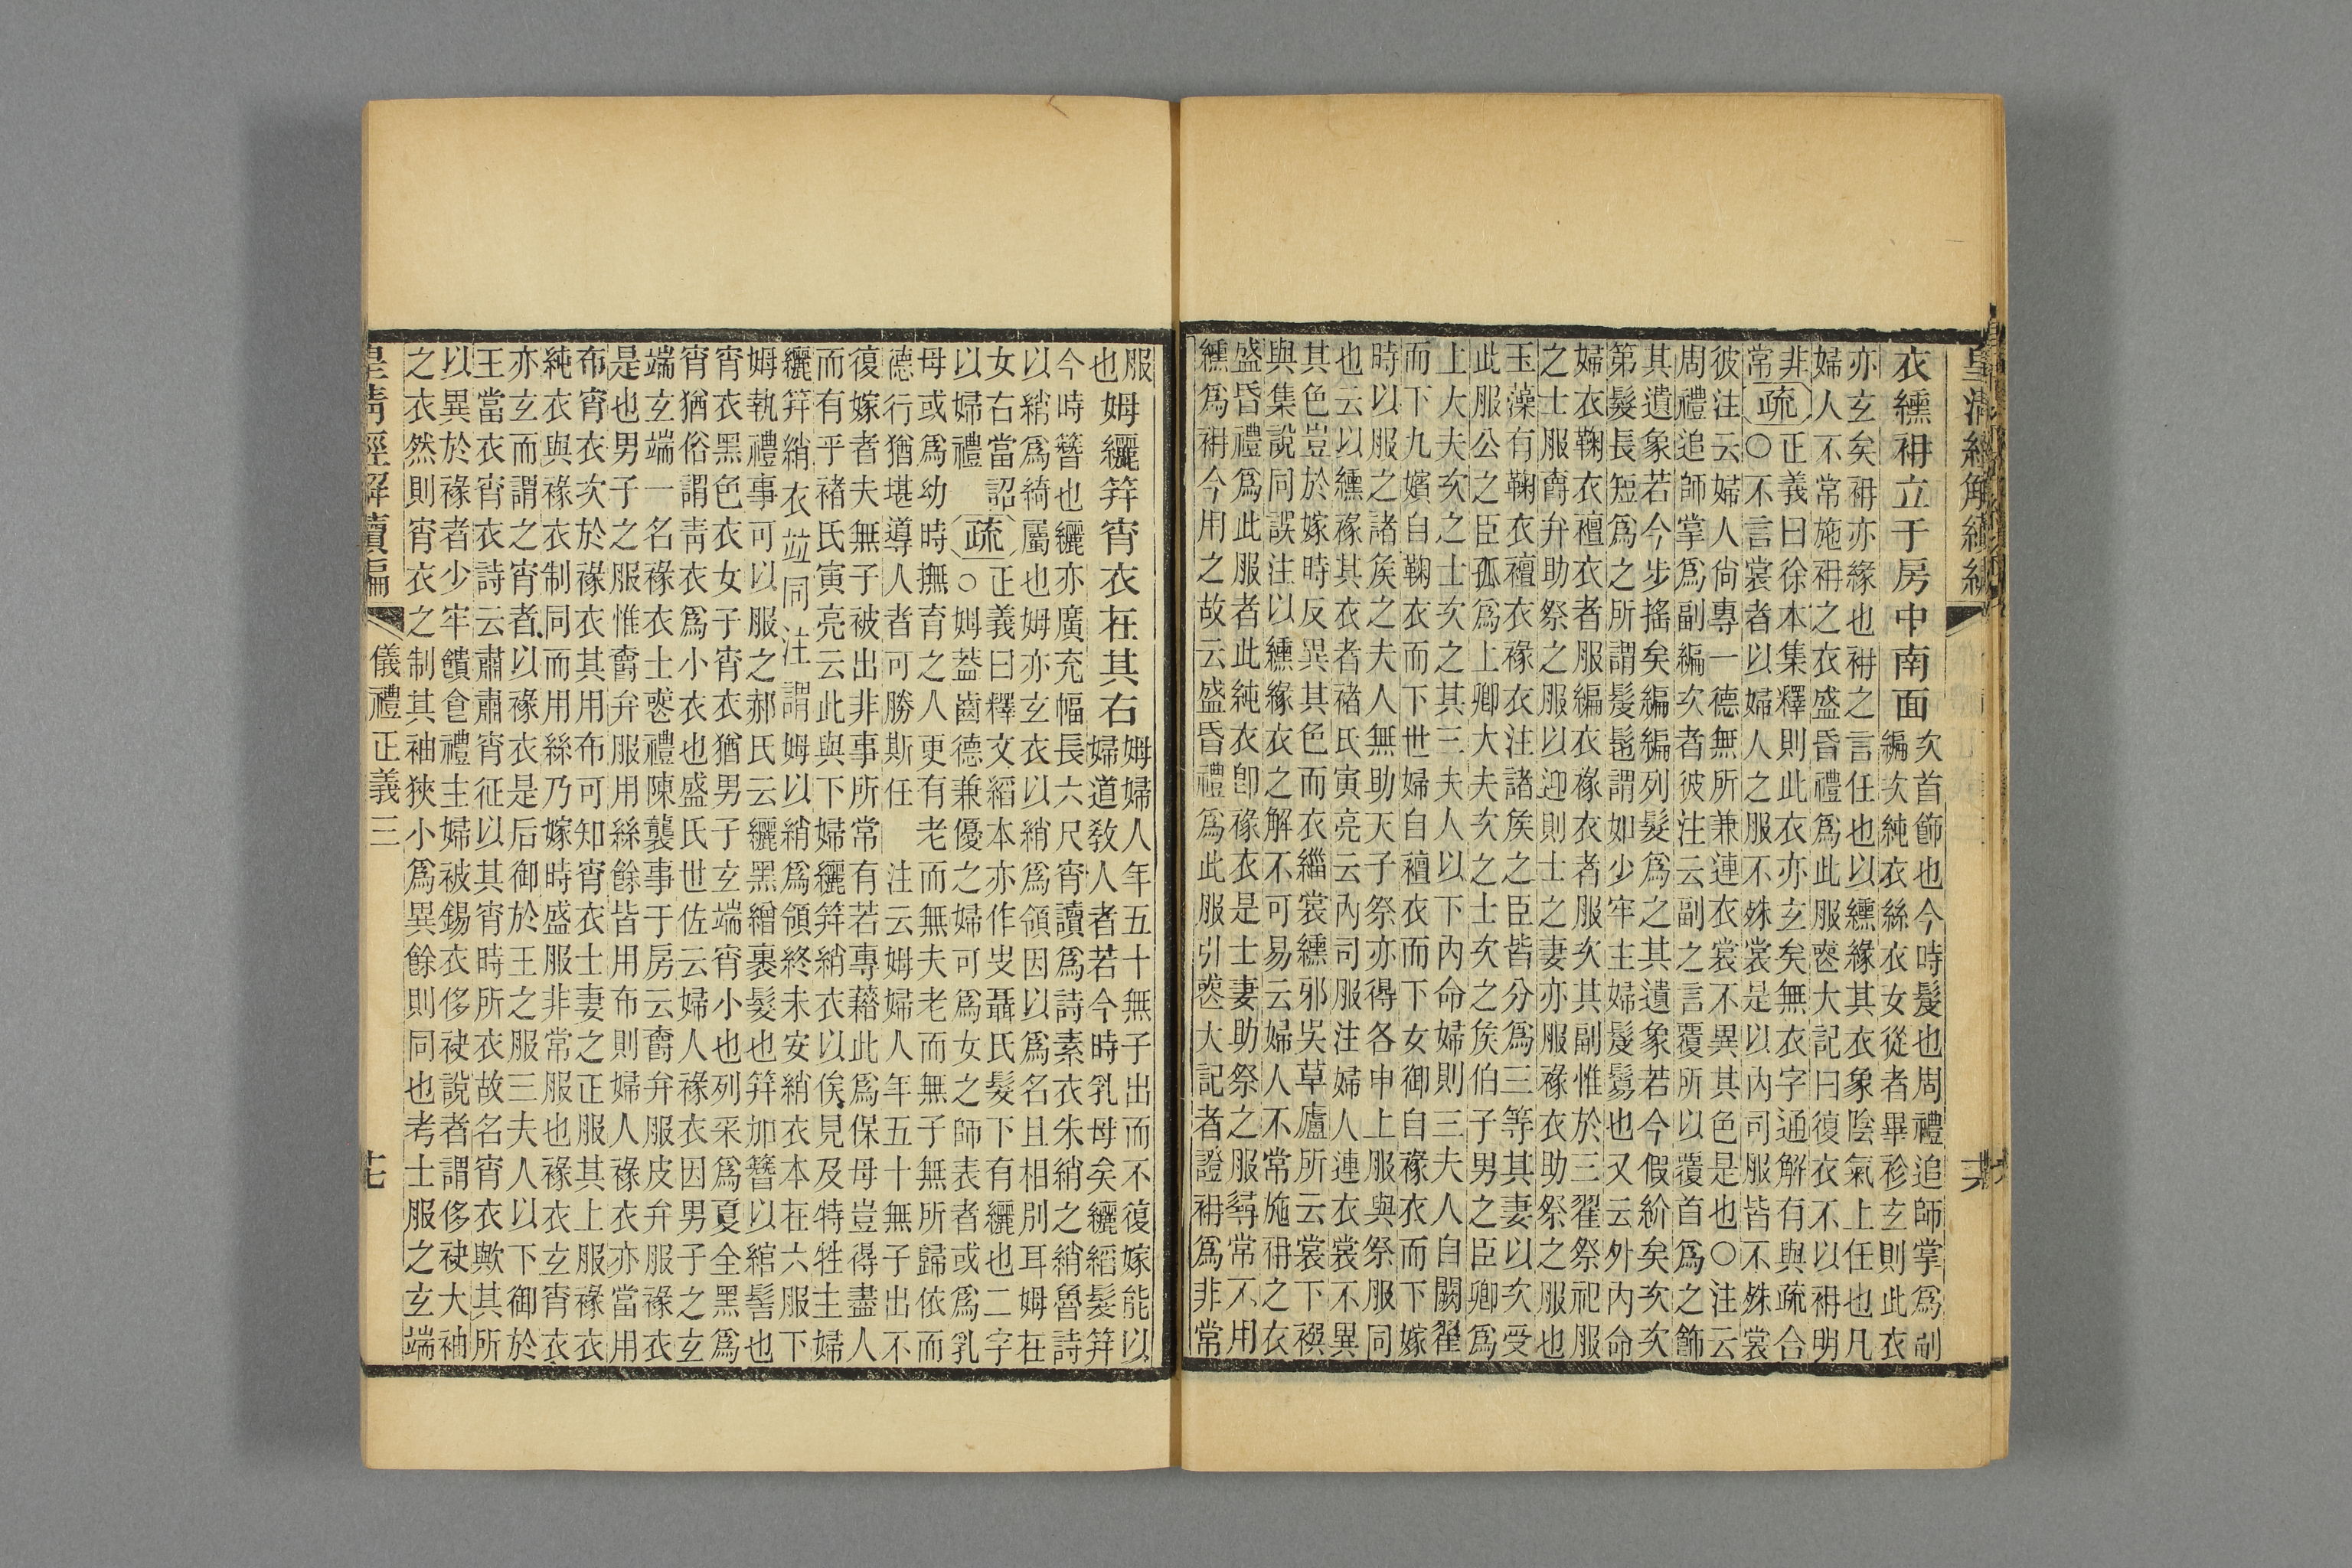 皇清經解續編
衣纁袡立于房中南面
次首飾也今時髲也周禮追師掌爲副
編次純衣絲衣女從者畢袗玄則此衣
亦玄矣袡亦緣也袡之言任也以纁緣其衣象陰氣上任也凡
婦人不常施袡之衣盛昏禮爲此服喪大記曰復衣不以袡明
非
常
疏
正義曰徐本集釋則此衣亦玄矣無衣字通解有與疏合
○不言裳者以婦人之服不殊裳是以內司服皆不殊裳
彼注云婦人尚專一德無所兼連衣裳不異其色是也○注云
周禮追師掌爲副編次者彼注云副之言覆所以覆首爲之飾
其遺象若今步搖矣編編列髮爲之其遺象若今假紒矣次次
第髮長短爲之所謂髲髢謂如少牢主婦髲鬄也又云外內命
婦衣鞠衣襢衣者服編衣褖衣者服次其副惟於三翟祭祀服
之士服爵弁助祭之服以迎則士之妻亦服褖衣助祭之服也
玉藻有鞠衣襢衣褖衣注諸侯之臣皆分爲三等其妻以次受
此服公之臣孤爲上卿大夫次之士次之侯伯子男之臣卿爲
上大夫次之士次之其三夫人以下內命婦則三夫人自闕翟
而下九嬪自鞠衣而下世婦自襢衣而下女御自褖衣而下嫁
時以服之諸侯之夫人無助天子祭亦得各申上服與祭服同
也云以纁褖其衣者褚氏寅亮云內司服注婦人連衣裳不異
其色豈於嫁時反異其色而衣緇裳纁邪吳草廬所云裳下襈
與集說同誤注以纁緣衣之解不可易云婦人不常施袡之衣
盛昏禮爲此服者此純衣卽褖衣是士妻助祭之服尋常不用
纁爲袡今用之故云盛昏禮爲此服引喪大記者證袡爲非常
服
也
姆纚笄宵衣在其右
姆婦人年五十無子出而不復嫁能以
婦道敎人者若今時乳母矣纚縚髮笄
今時簪也纚亦廣充幅長六尺宵讀爲詩素衣朱綃之綃魯詩
以綃爲綺屬也姆亦玄衣以綃爲領因以爲名且相別耳姆在
女右當詔
以婦禮
疏
正義曰釋文縚本亦作㕚聶氏髮下有纚也二字
○姆蓋齒德兼優之婦可爲女之師表者或爲乳
母或爲幼時撫育之人更有老而無夫老而無子無所歸依而
德行猶堪導人者可勝斯任 注云姆婦人年五十無子出不
復嫁者夫無子被出非事所常有若專藉此爲保母豈得盡人
而有乎褚氏寅亮云此與下婦纚笄綃衣以俟見及特牲主婦
纚笄綃衣竝同注謂姆以綃爲領終未安綃衣本在六服下
姆執禮事可以服之郝氏云纚黑繒裹髮也笄加簪以綰髻也
宵衣黑色衣女子宵衣猶男子玄端宵小也列采爲夏全黑爲
宵猶俗謂靑衣爲小衣也盛氏世佐云婦人褖衣因男子之玄
端玄端一名褖衣士喪禮陳襲事于房云爵弁服皮弁服褖衣
是也男子之服惟爵弁服用絲餘皆用布則婦人褖衣亦當用
布宵衣次於褖衣其用布可知宵衣士妻之正服其上服褖衣
純衣與褖衣制同而用絲乃嫁時盛服非常服也褖衣玄宵衣
亦玄而謂之宵者以褖衣是后御於王之服三夫人以下御於
王當衣宵衣詩云肅肅宵征以其宵時所衣故名宵衣歟其所
以異於褖者少牢饋食禮主婦被錫衣侈袂說者謂侈袂大袖
之衣然則宵衣之制其袖狹小爲異餘則同也考士服之玄端
皇淸經解續編 儀禮正義三